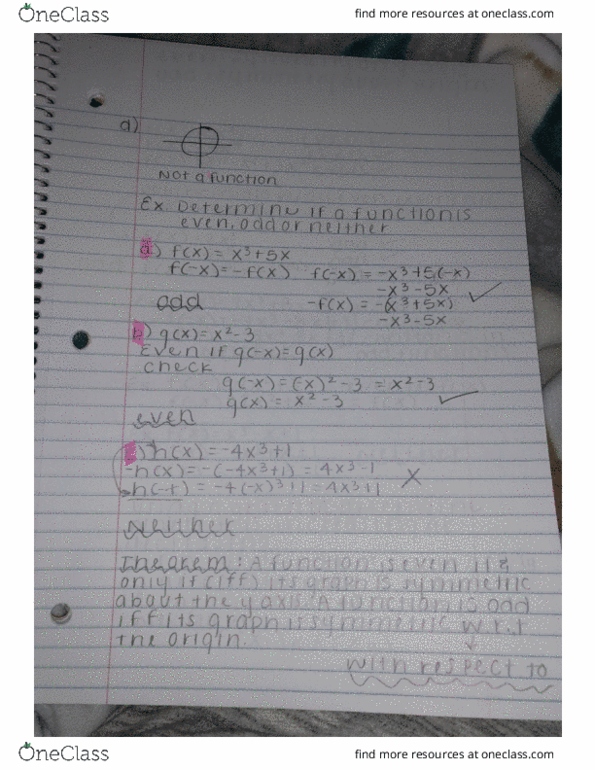 OneClass
find more resources at oneclass.com
d)
Not a function
Ex. Determine if a function is
even, odd or neither
a) f(x) = x³+5x
f(-x) = -f(x) f(-x) = -x³+5(-x)
-x³-5x
odd -f(x) = -(x³+5x)
-x³-5x
b) g(x) = x²-3
Even if g(-x) = g(x)
check
g(-x) = (-x)²-3 = x²-3
g(x) = x²-3
even
h(x) = -4x³+1
-h(x) = -(-4x³+1) = 4x³-1
= -4(-x)³+1 = 4x³+1
Neither
Theorem: A function is even if &
only if (iff) its graph is symmetric
about the y axis. A function is odd
iff its graph is symmetric w.r.t
the origin.
with respect to
OneClass
find more resources at oneclass.com